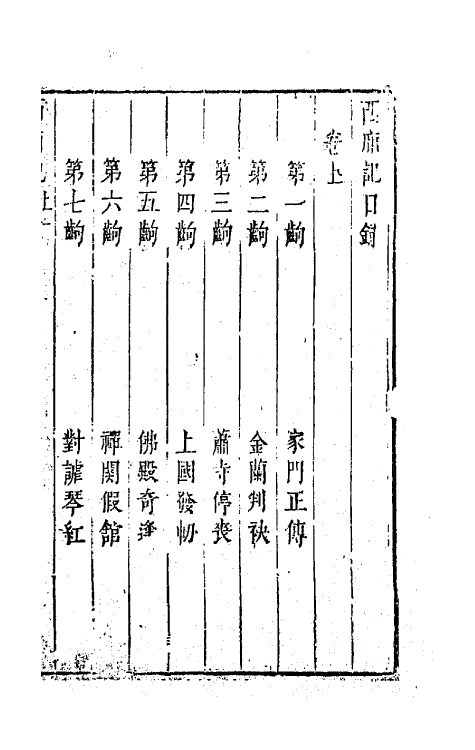 西廂記目錄
卷上
第一齣 家門正傳
第二齣 金蘭判袂
第三齣 蕭寺停喪
第四齣 上國發軔
第五齣 佛殿奇逢
第六齣 禪関假館
第七齣 對謔琴紅